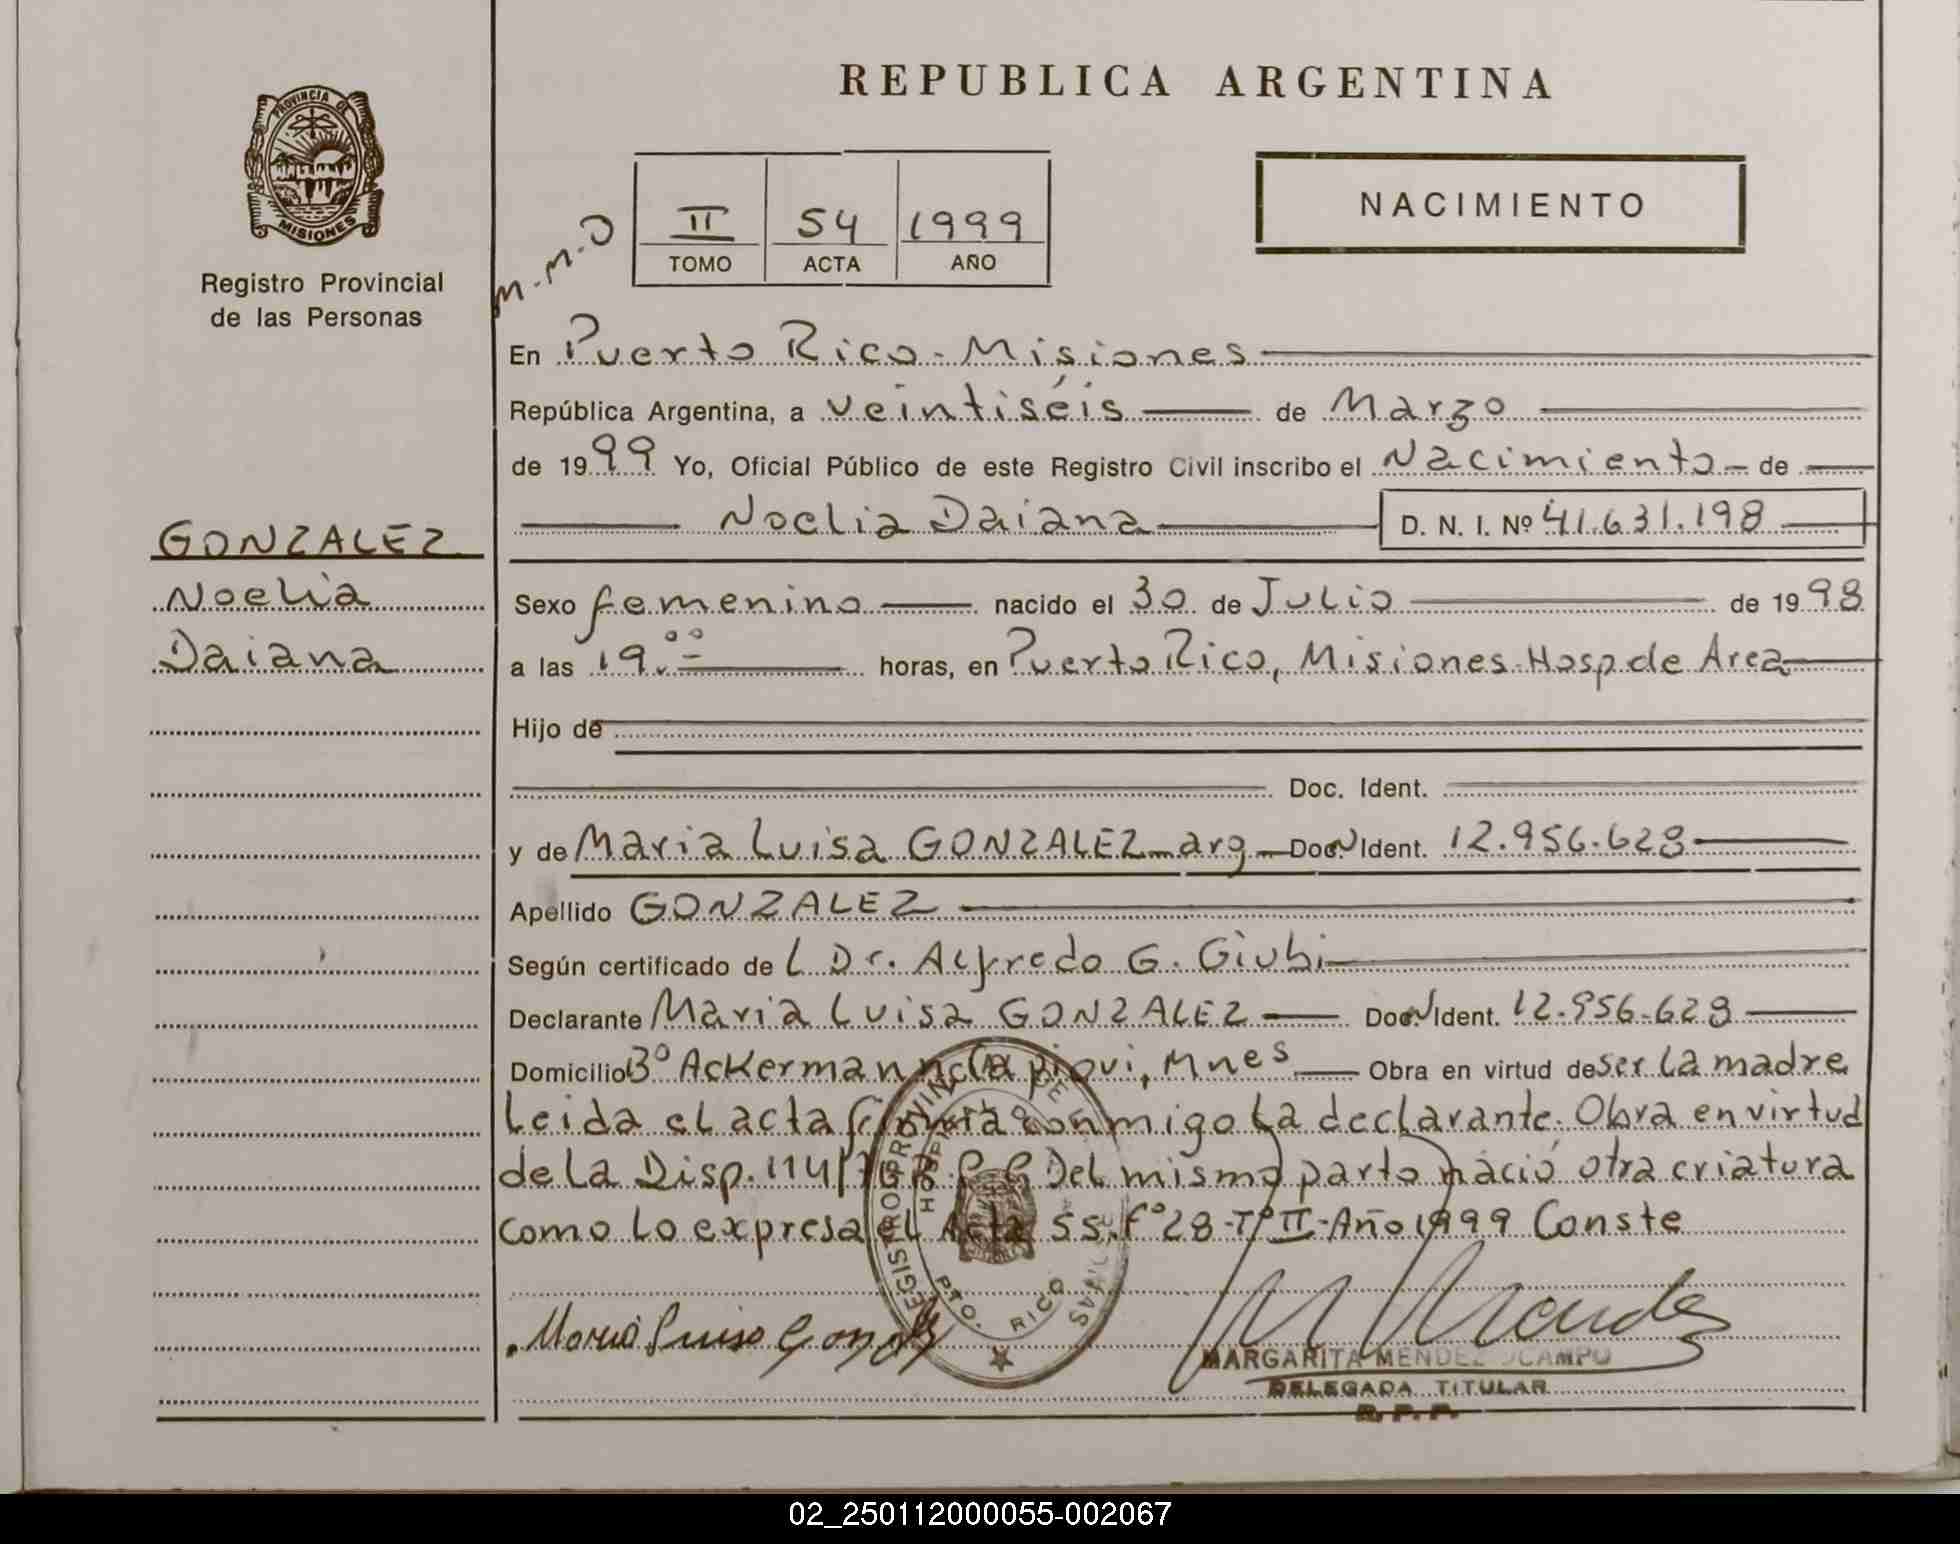 REPUBLICA ARGENTINA
PROVINCIA DE
MISIONES
Registro Provincial
de las Personas
M.M.O
II 54 1999
TOMO ACTA AÑO
NACIMIENTO
En Puerto Rico - Misiones
República Argentina, a veintiséis de Marzo
de 1999 Yo, Oficial Público de este Registro Civil inscribo el Nacimiento de
Noelia Daiana D. N. I. Nº 41.631.198
GONZALEZ
Noelia
Daiana
Sexo femenino nacido el 30 de Julio de 1998
a las 19.00 horas, en Puerto Rico, Misiones - Hosp. de Area
Hijo de
Doc. Ident.
y de Maria Luisa GONZALEZ - arg - Doc. N Ident. 12.956.628
Apellido GONZALEZ
Según certificado de l Dr. Alfredo G. Giubi
Declarante Maria Luisa GONZALEZ Doc. N Ident. 12.956.628
Domicilio Bº Ackermann Capiovi, Mnes Obra en virtud de ser la madre
Leida el acta firma conmigo La declarante. Obra en virtud
de La Disp. 114/ Del mismo parto nació otra criatura
como Lo expresa el Acta 55. Fº 28 - Tº II - Año 1999 Conste
REGISTRO PROVINCIAL DE LAS
PTO. RICO
Maria Luisa Gonz
M Mendez
MARGARITA MENDEZ OCAMPO
DELEGADA TITULAR
R. P. P.
02_250112000055-002067